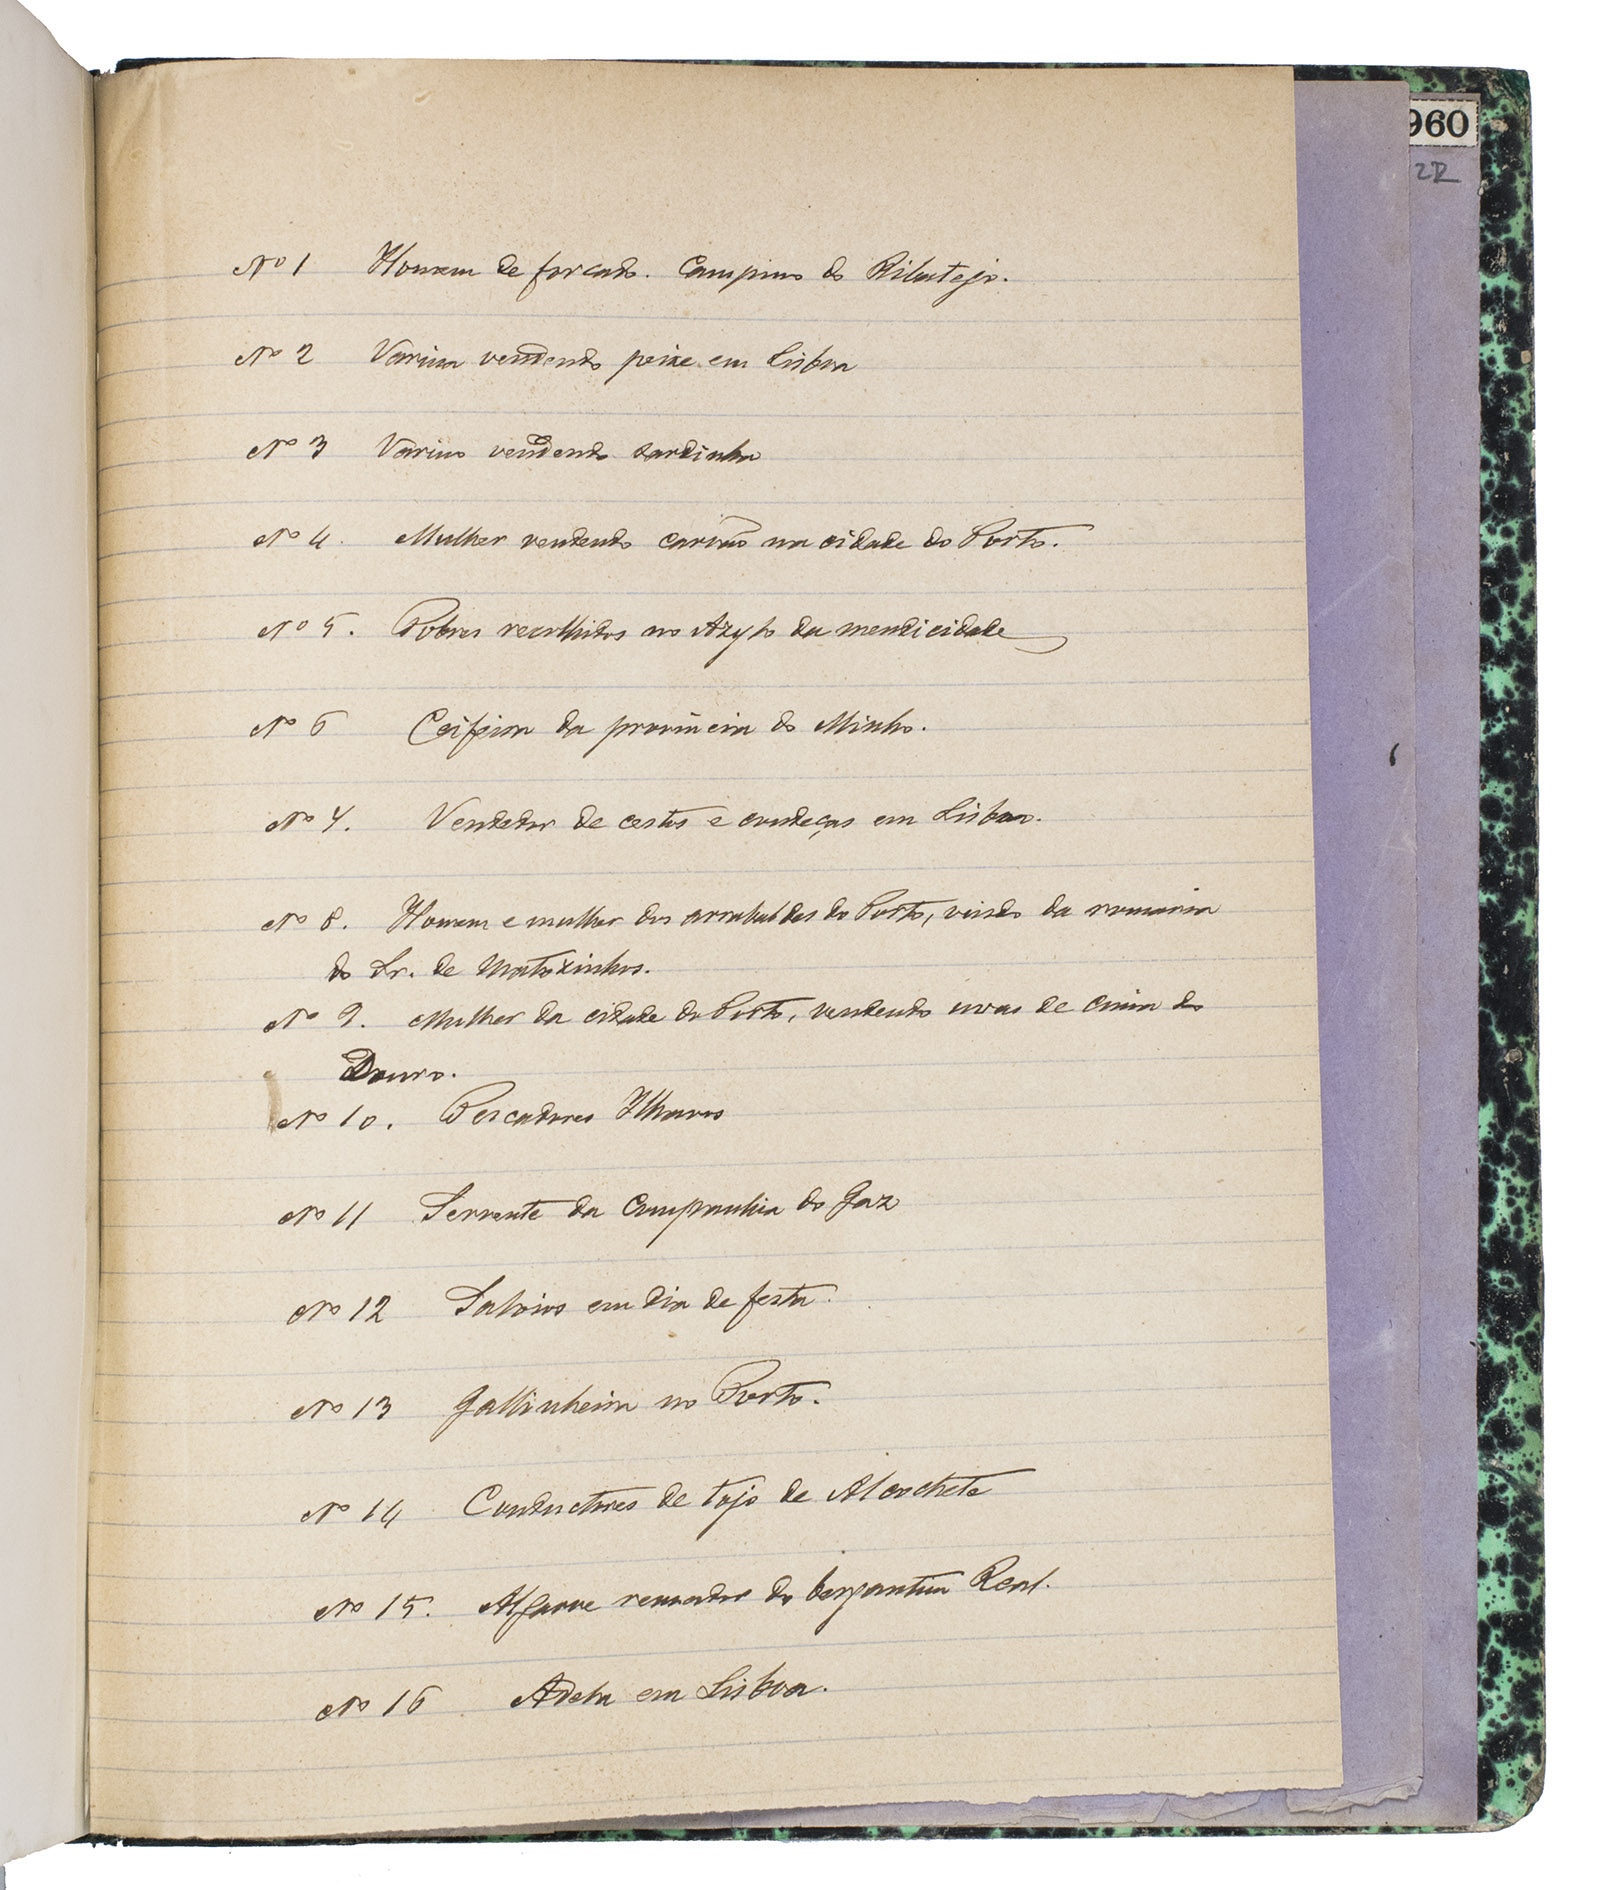 960
2R
Nº 1 Homem de forcado. Campino do Ribatejo.
Nº 2 Varina vendendo peixe em Lisboa
Nº 3 Varino vendendo sardinha
Nº 4. Mulher vendendo carvão na cidade do Porto.
Nº 5. Pobres recolhidos no Azylo da mendicidade
Nº 6 Ceifeira da provincia do Minho.
Nº 7. Vendedor de cestos e condeças em Lisboa.
Nº 8. Homem e mulher dos arrabaldes do Porto, vindo da romaria
do Sr. de Matozinhos.
Nº 9. Mulher da cidade do Porto, vendendo uvas de cima do
Douro.
Nº 10. Pescadores Ilhavos
Nº 11 Servente da Companhia do Gaz
Nº 12 Saloios em dia de festa.
Nº 13 Gallinheira no Porto.
Nº 14 Conductores de tojo de Alcochete
Nº 15. Algarve remador do bergantim Real.
Nº 16 Adela em Lisboa.